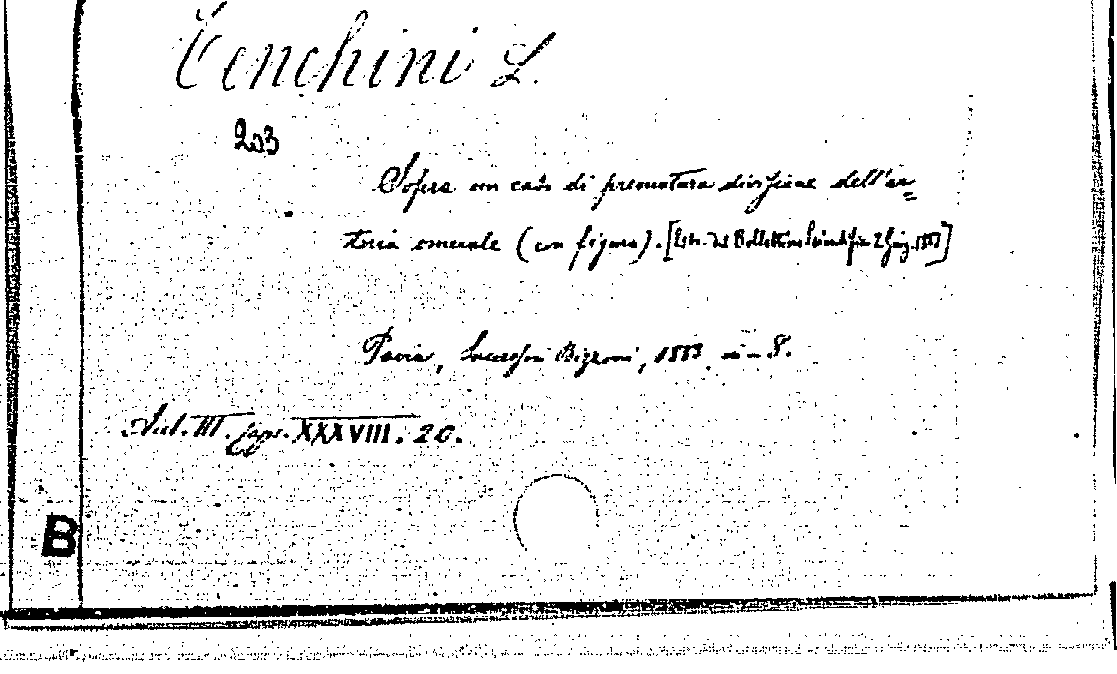 Tenchini L.
203
Sopra un caso di prematura divisione dell'ar=
teria omerale (con figura). [Estr. dal Bollettino Scientifico 2 Giug. 1883]
Pavia, Successori Bizzoni, 1883. in-8.
Aul. III. XXXVIII. 20.
B